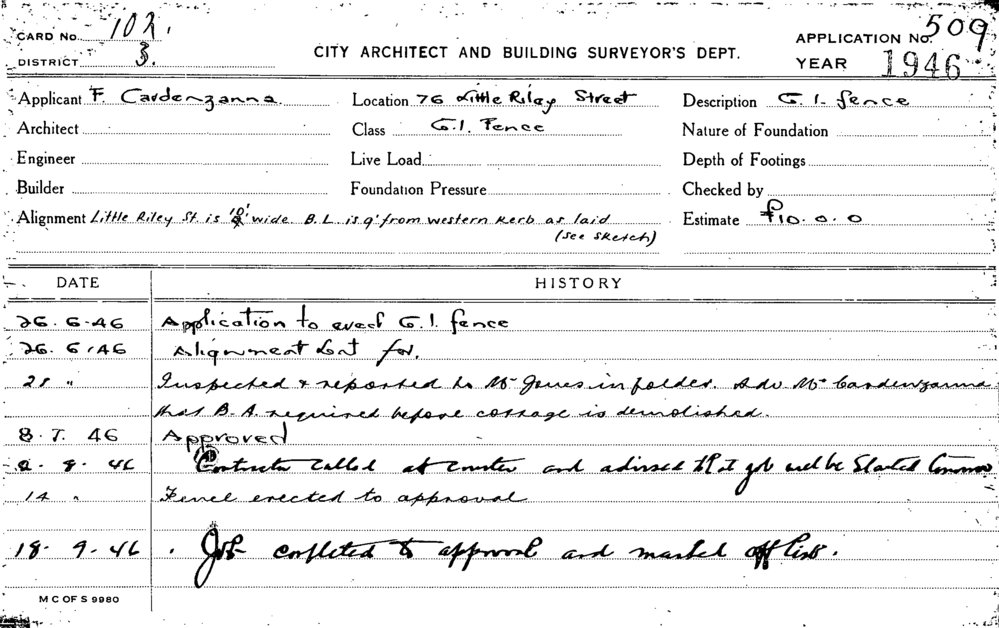 CARD No. 102.
DISTRICT 3.
CITY ARCHITECT AND BUILDING SURVEYOR'S DEPT.
APPLICATION No. 509
YEAR 1946
Applicant F. Cardenzanna
Location 76 Little Riley Street
Description G. I. fence
Architect
Class G.I. Fence
Nature of Foundation
Engineer
Live Load
Depth of Footings
Builder
Foundation Pressure
Checked by
Alignment Little Riley St. is 10' wide B.L. is 9' from western kerb as laid
(see sketch)
Estimate £10.0.0
DATE HISTORY
26.6.46 Application to erect G.I. fence
26.6.46 Alignment for.
28 " Inspected & reported to Mr Jones in folder. Adv. Mr Cardenzanna
that B.A. required before cottage is demolished.
8.7.46 Approved
8.46 Contractor called at counter and advised that job will be started
14 " Fence erected to approval
18.9.46 . Job completed to approval and marked off list.
M C OF S 9980